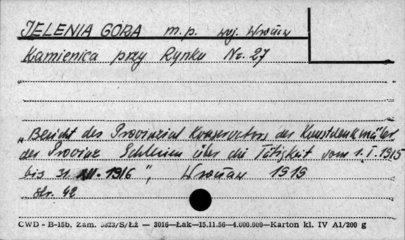 JELENIA GÓRA m.p. woj. Wrocław
Kamienica przy Rynku Nr. 27
„Bericht des Provinzial Konservators der Kunstdenkmäler
der Provinz Schlesien über die Tätigkeit vom 1.I.1915
bis 31. XII. 1916", Wrocław 1919
str. 42
CWD - B-15b, Zam. 5823/S/Łż — 3016—Łak—15.11.56—4.000.000—Karton kl. IV A1/200 g